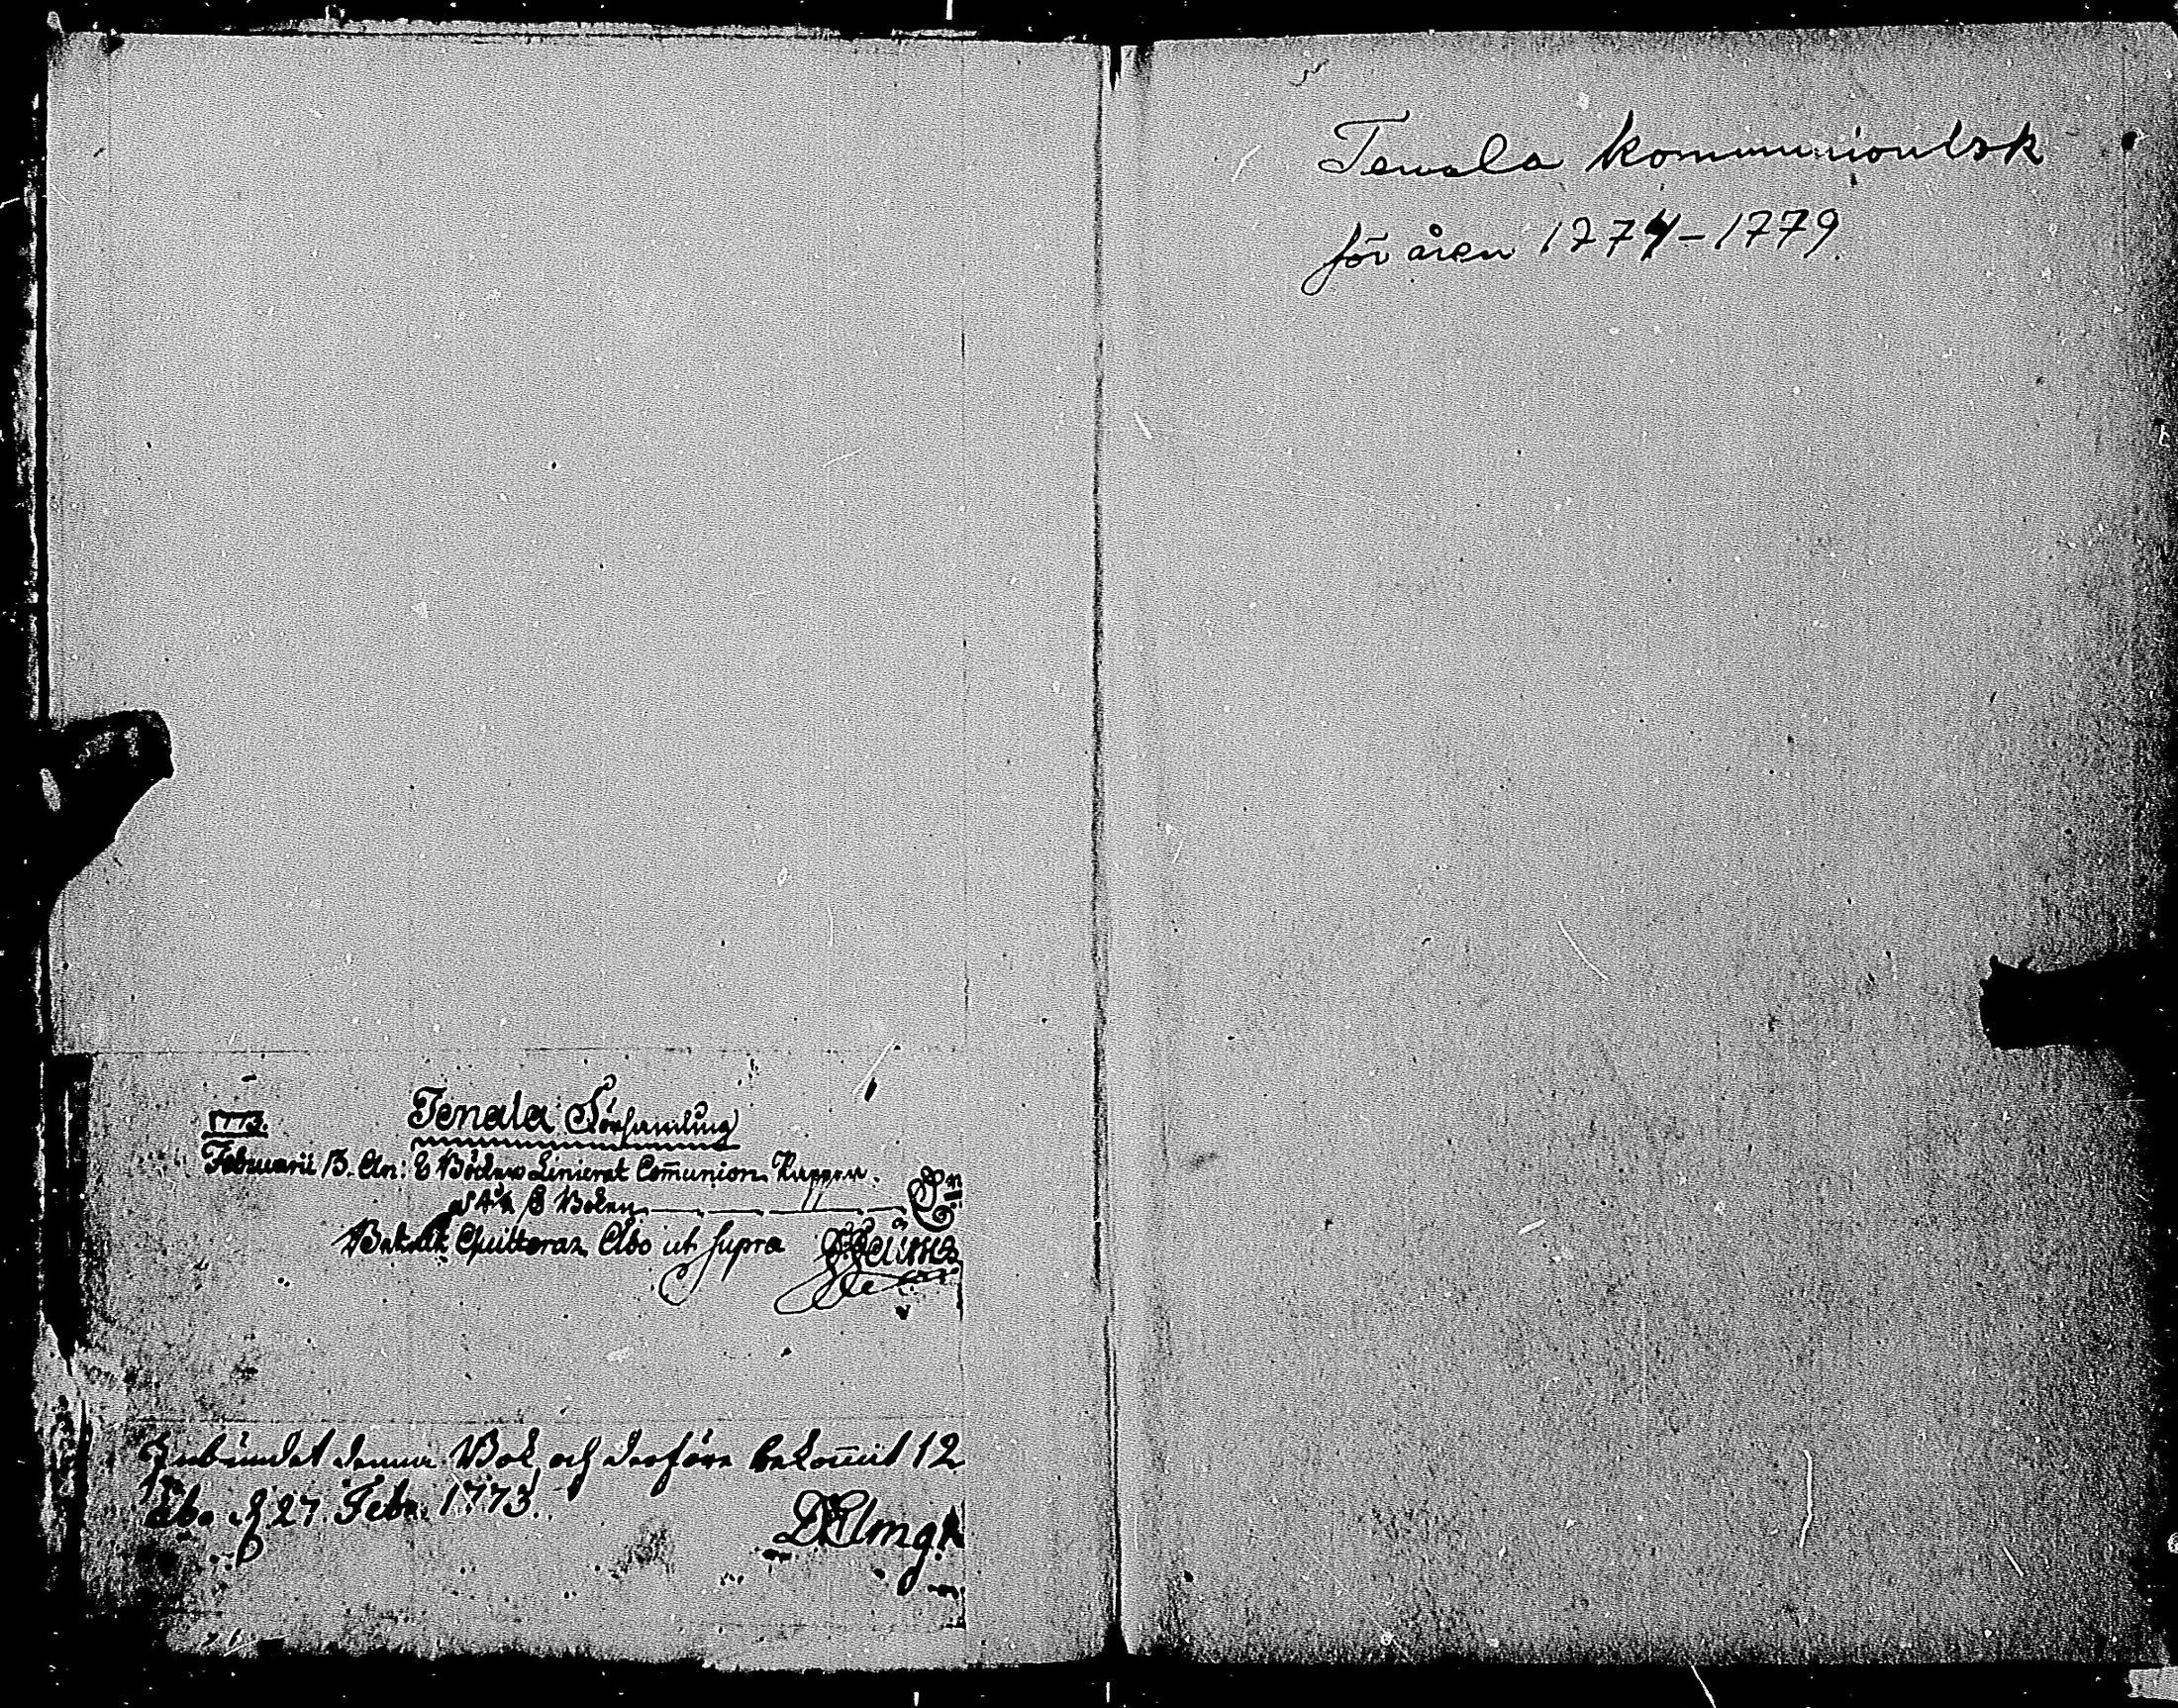 Tenala Församling
1773.
Februarii 13. An: 6 Böcker Linierat Communion Papper.
Boken
Betalt Quitteras Åbo ut supra
Inbundet denna Bok och derföre bekommit 12
Åbo d 27. Febr. 1773.
DElmg
Tenala kommunionbok
för åren 1774-1779.